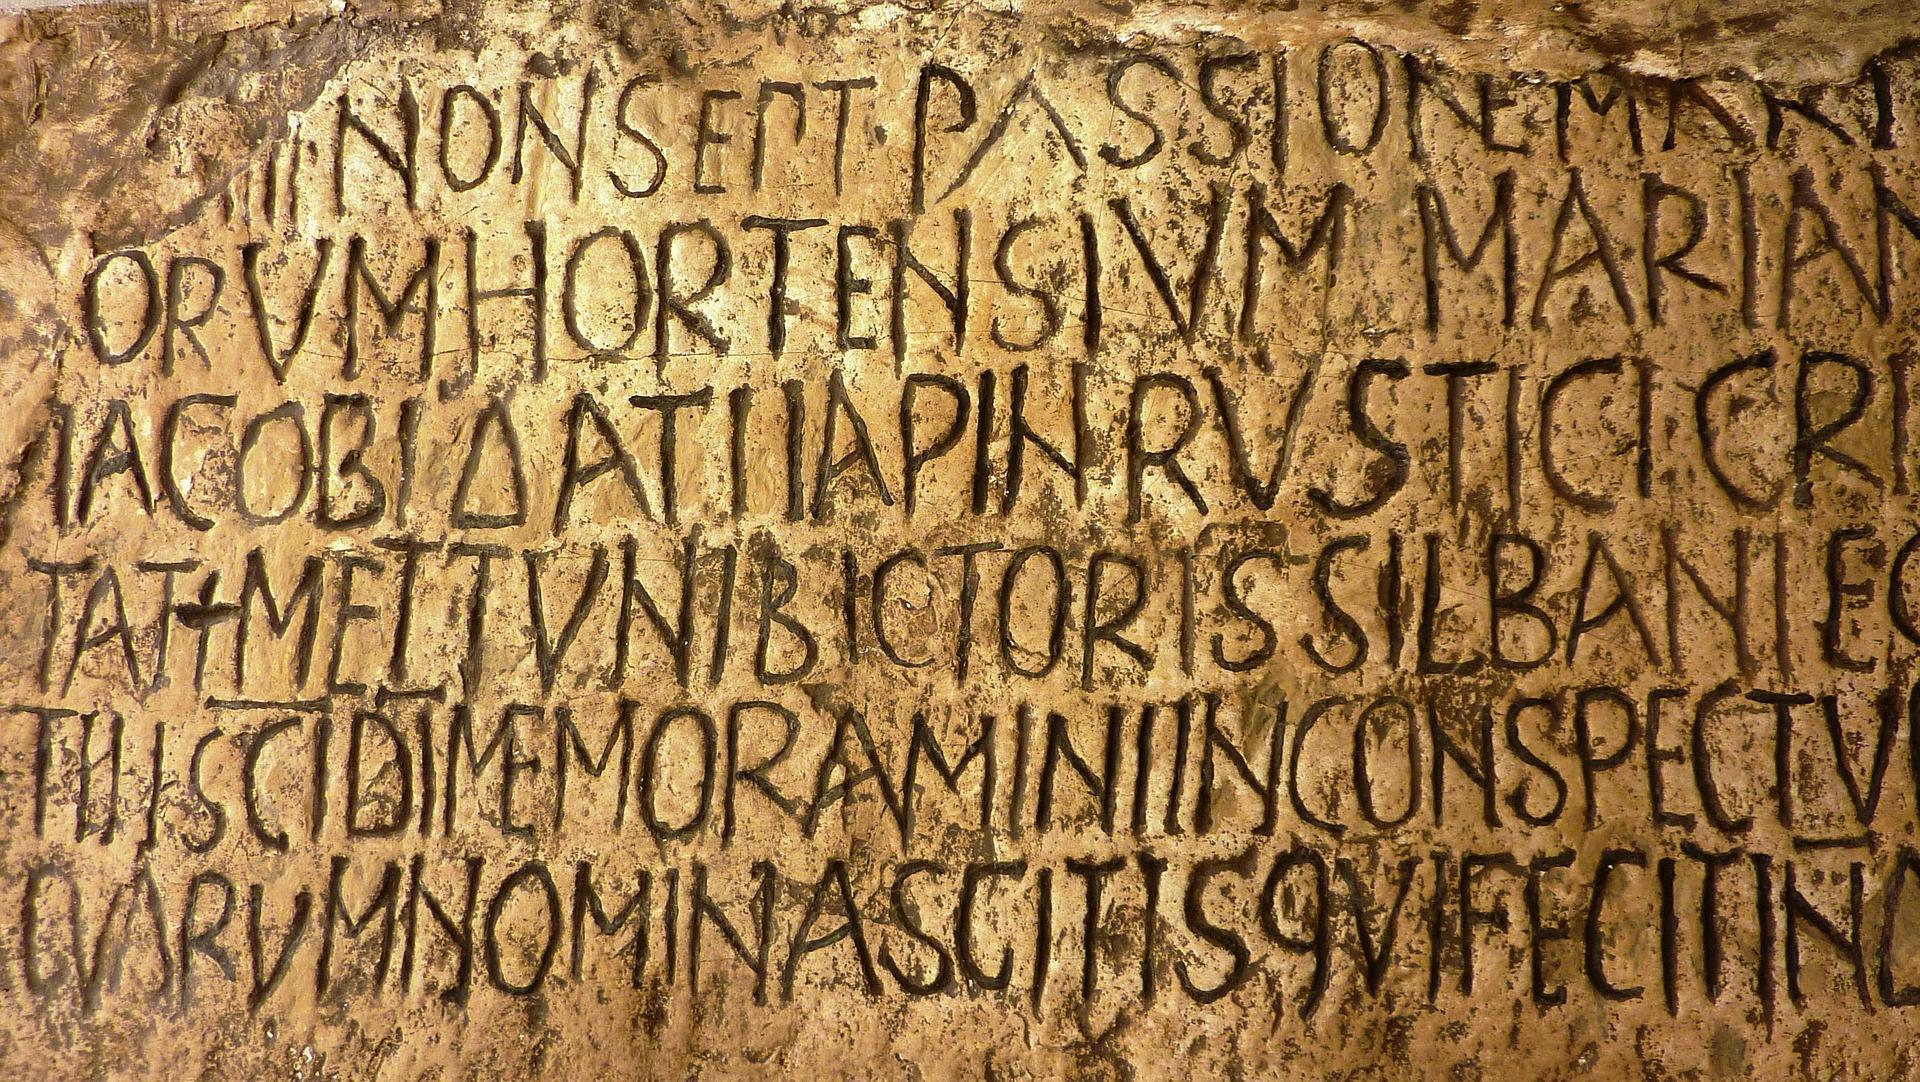 III NON SEPT · PASSIONE MARTVR
ORVM HORTENSIVM MARIAN
IACOBI ΔATI IAPIN RVSTICI CRI
TAT + METTVNI BICTORIS SILBANI EG
SCI DI MEMORAMINI IN CONSPECTV
QVARVM NOMINA SCITIS QVI FECIT IN